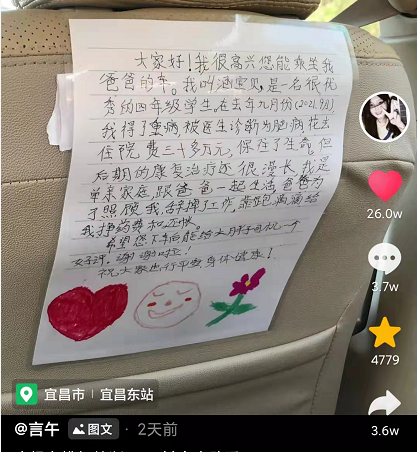 大家好！我很高兴您能乘坐我
爸爸的车。我叫涵宝贝，是一名很优
秀的四年级学生在去年九月份(2021.9月)
我得了重病被医生诊断为脑病花去
住院费三十多万元，保住了生命。但
后期的康复治疗还很漫长，我是
单亲家庭跟爸爸一起生活，爸爸为
了照顾我，辞掉工作，靠跑滴滴给
我挣药费和
希望您下车后能给
好评，谢谢啦！
祝大家出行平安身体健康！
26.0w
3.7w
4779
3.6w
宜昌市 | 宜昌东站
@言午 图文 · 2天前